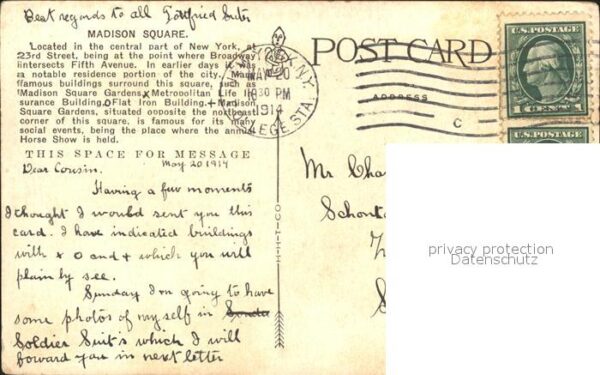 Best regards to all Gottfried Suter
MADISON SQUARE.
Located in the central part of New York, at
23rd Street, being at the point where Broadway
intersects Fifth Avenue. In earlier days it was
a notable residence portion of the city. Many
famous buildings surround this square, such as
Madison Square Gardens x Metropolitan Life In-
surance Building, o Flat Iron Building. + Madison
Square Gardens, situated opposite the northeast
corner of this square, is famous for its many
social events, being the place where the annual
Horse Show is held.
THIS SPACE FOR MESSAGE
May 20 1914
Dear Cousin.
Having a few moments
I thought I would sent you this
card. I have indicated buildings
with x o and + which you will
plain by see.
Sunday I'm going to have
some photos of my self in
Soldier Suit's which I will
foward you in next letter
H-T-CO
POST CARD
ADDRESS
N.Y.
MAY 20
30 PM
1914
COLLEGE STA.
U.S. POSTAGE
1 CENT 1
U.S. POSTAGE
C
Mr
privacy protection
Datenschutz